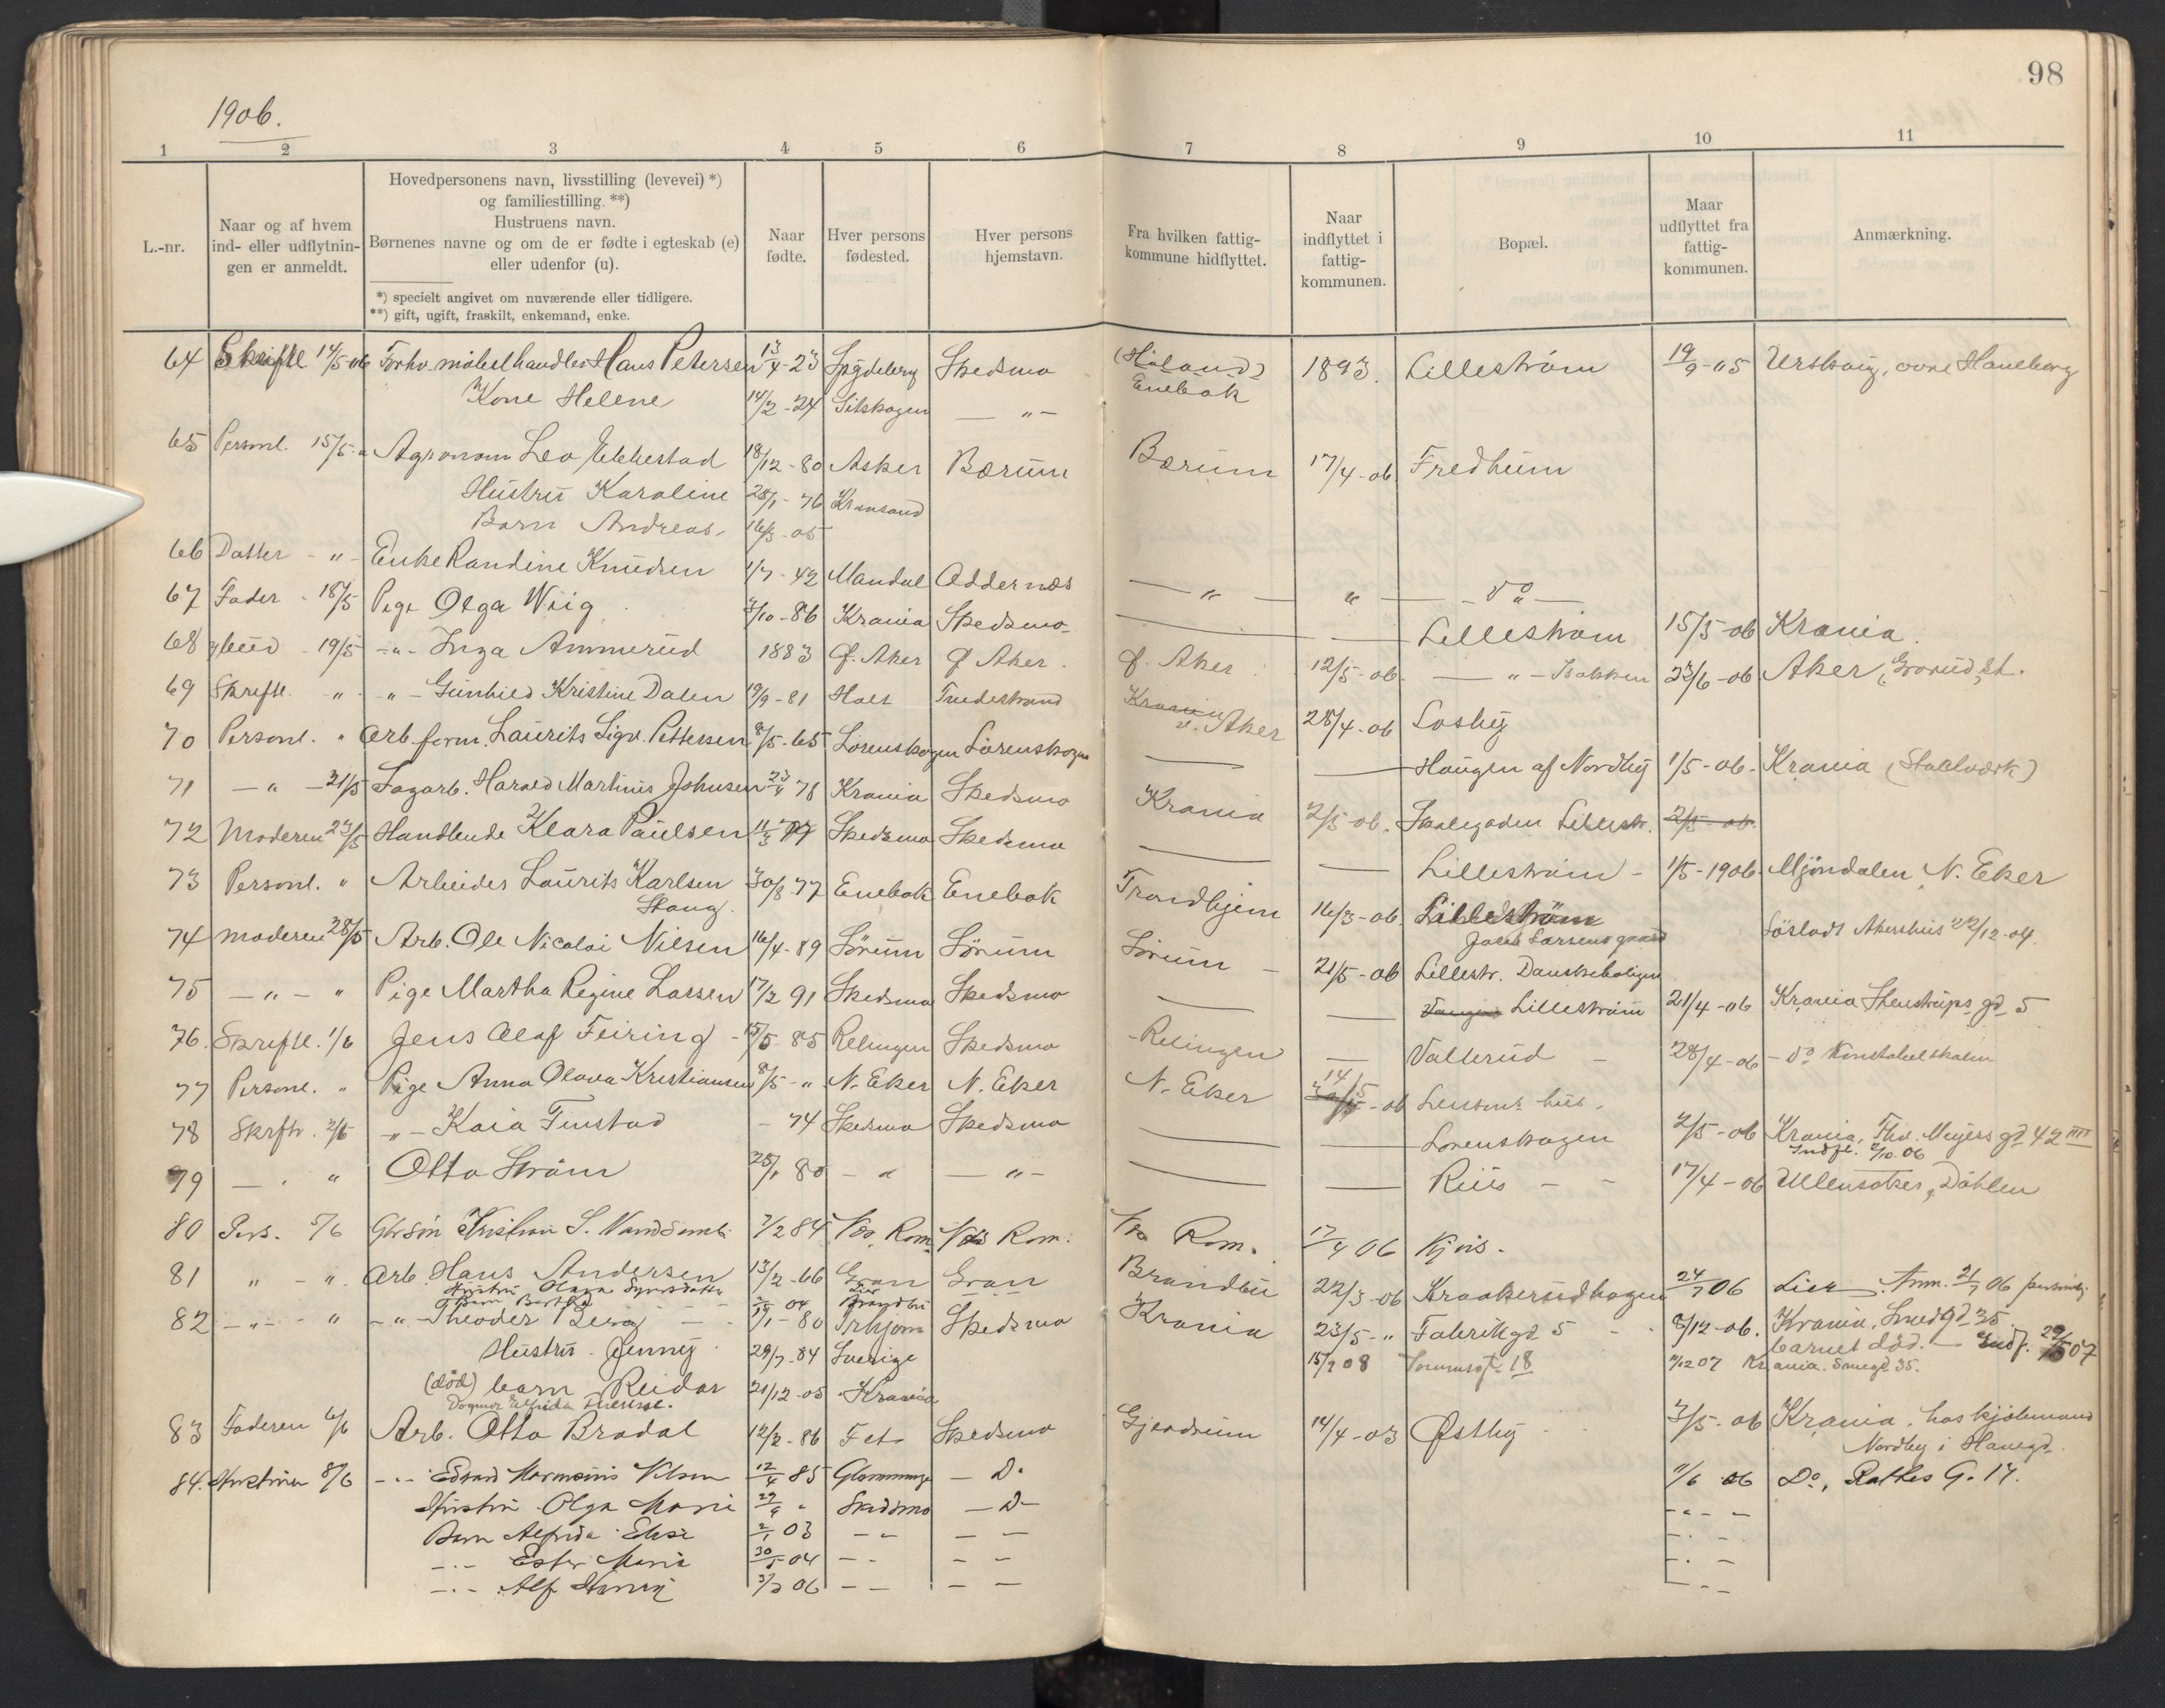 98
1906.
1 2 3 4 5 6 7 8 9 10 11
L.-nr.
Naar og af hvem
ind- eller udflytnin-
gen er anmeldt.
Hovedpersonens navn, livsstilling (levevei) *)
og familiestilling. **)
Hustruens navn.
Børnenes navne og om de er fødte i egteskab (e)
eller udenfor (u).
*) specielt angivet om nuværende eller tidligere.
**) gift, ugift, fraskilt, enkemand, enke.
Naar
fødte.
Hver persons
fødested.
Hver persons
hjemstavn.
Fra hvilken fattig-
kommune hidflyttet.
Naar
indflyttet i
fattig-
kommunen.
Bopæl.
Maar
udflyttet fra
fattig-
kommunen.
Anmærkning.
64 Skriftl 14/5-06 Forhv. møbelhandler Hans Petersen 13/4-23 Spydeberg Skedsmo (Høland) 1893. Lillestrøm 19/9-05 Urskoug, øvre Haneborg
Kone Helene 14/2-24 — " — Enebak
65 Personl. 15/5 Agronom Leo Ekkestad 18/12-80 Asker Bærum Bærum 17/4-06 Fredheim
Hustru Karoline 28/1-76 Kransand
Barn Andreas 16/3-05
66 Datter - " - Enke Randine Knudsen 1/7-42 Mandal Oddernæs — " — " — do —
67 Fader - 18/5 Pige Olga Wiig 3/10-86 Krania Skedsmo — — Lillestrøm 15/5-06 Krania.
68 19/5 - " - Inga Ammerud 1883 Ø. Aker Ø Aker Ø. Aker 12/5-06 — " — 23/6-06 Aker, Grorud st.
69 Skriftl. " - " - Gunhild Kristine Dalen 19/9-81 Holt Tvedestrand Krania v. Aker 28/4-06 Losby
70 Personl. " Arb.form. Laurits Sigv. Pettersen 8/5-65 Lørenskogen Lørenskogen — — Haugen af Nordby 1/5-06 Krania (Staalværk)
71 — " — 21/5 Sagarb. Harald Martinus Johnsen 23/4 78 Krania Skedsmo Krania 2/5-06. Skolegaden Lillestr. 2/5-06
72 Moderen 23/5 Handlende Klara Paulsen 11/3 77 Skedsmo Skedsmo — — Lillestrøm - 1/5-1906 Mjøndalen, N. Eker
73 Personl. " Arbeider Laurits Karlsen 30/8-77 Enebak Enebak Trondhjem 16/3-06. Lillestrøm
Stang. Jacob Larsens gaard
74 Moderen 28/5 Arb. Ole Nicolai Nilsen 16/4-89 Sørum Sørum Sørum - 21/5-06 Lillestr. Danskeboligen Løsladt Akershus 22/12-04.
75 — " — " Pige Martha Regine Larsen 17/2 91 Skedsmo Skedsmo — — Lillestrøm 21/4-06 Krania Stenstrups gd 5
76. Skriftl. 1/6 Jens Olaf Feiring - 15/5 85 Relingen Skedsmo Relingen — Vallerud - 28/4-06 - do Konstabelskolen
77 Personl. " Pige Anna Olava Kristiansen 8/5-" N. Eker N. Eker N. Eker 14/5-06 Lensm. hus.
78 Skrftl. 2/6 - " - Kaia Finstad - 74 Skedsmo Skedsmo — — Lørenskogen 2/5-06 Krania, Thv. Meyers gd 42 III
Indfl. 2/10.06
79 — " — " Otto Strøm 25/1 80 — " — " — — — Riis - - 17/4-06 Ullensaker, Døhlen
80 Pers. 5/6 Kristian S. 7/2 84 Næs Rom. Næs Rom. Næs Rom. 17/4 06 Kjos.
81 " - " Arb. Hans Andersen 13/2-66 Gran Gran Brandbu 22/3-06 Kraakerudhagen 24/7 06 Lier. Anm. 21/7 06 personlig
Hustru Olava Syversdatter Lier
Barn 04 Brandbu
82 — " — " - " - Theodor Berg 1/1-80 Skedsmo Krania 23/5-" Fabrikgd 5 8/12-06. Krania, Smedgd 35.
Hustru Jenny 29/7-84 Sverige 15/2 08 18 barnet død. — Indf. 07
(død) barn Reidar 21/12-05 Krania 12 07 Krania. Smegd 35.
Dagmar Elfrida
83 Faderen 6/6 Arb. Otto Bradal 12/2-86 Fet Skedsmo Gjerdrum 14/4-03 Østby 3/5-06 Krania, hos kjøbmand
Nordby i Hausgd.
84. Hustruen 8/6 - " - Edvard 12/4 85 — Do 1/6 06 Do, Rathes G. 17.
Hustru Olga Marie 29/9 " Skedsmo — D —
Barn Alfrida Elise 2/1 03 — " — —
— " — Ester Marie 30/5-04 — " — —
— " — Alf Henry 3/2 06 — — — —